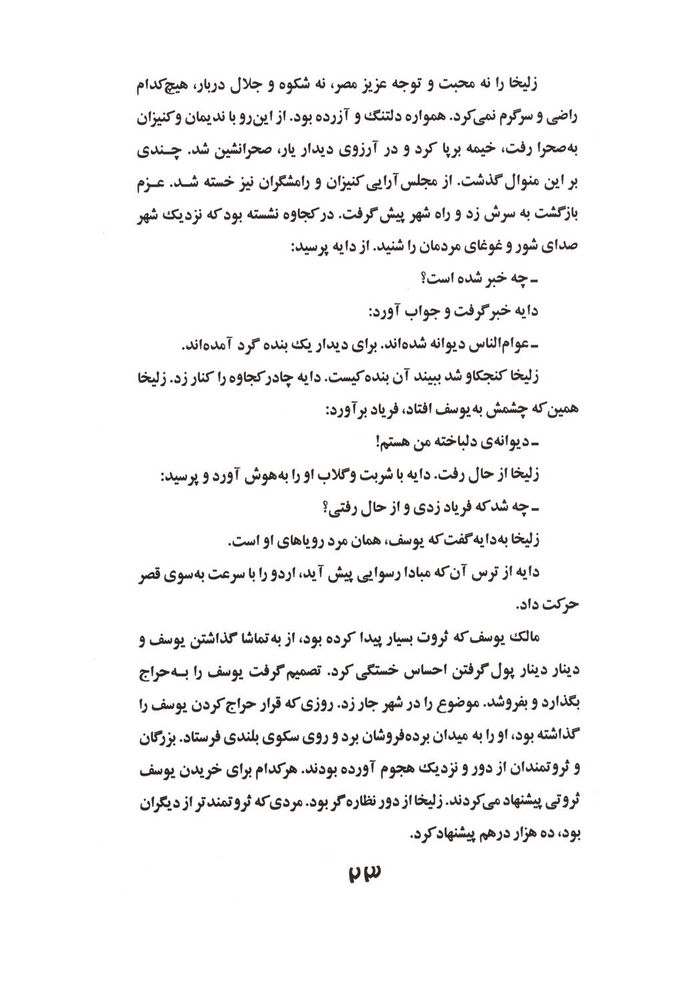 زلیخا را نه محبت و توجه عزیز مصر، نه شکوه و جلال دربار، هیچ‌کدام
راضی و سرگرم نمی‌کرد. همواره دلتنگ و آزرده بود. از این‌رو با ندیمان و کنیزان
به‌صحرا رفت، خیمه برپا کرد و در آرزوی دیدار یار، صحرانشین شد. چندی
بر این منوال گذشت. از مجلس‌آرایی کنیزان و رامشگران نیز خسته شد. عزم
بازگشت به سرش زد و راه شهر پیش گرفت. در کجاوه نشسته بود که نزدیک شهر
صدای شور و غوغای مردمان را شنید. از دایه پرسید:
ـ چه خبر شده است؟
دایه خبر گرفت و جواب آورد:
ـ عوام‌الناس دیوانه شده‌اند. برای دیدار یک بنده گرد آمده‌اند.
زلیخا کنجکاو شد ببیند آن بنده کیست. دایه چادر کجاوه را کنار زد. زلیخا
همین‌که چشمش به یوسف افتاد، فریاد برآورد:
ـ دیوانه‌ی دلباخته من هستم!
زلیخا از حال رفت. دایه با شربت و گلاب او را به‌هوش آورد و پرسید:
ـ چه شد که فریاد زدی و از حال رفتی؟
زلیخا به‌دایه گفت که یوسف، همان مرد رویاهای او است.
دایه از ترس آن‌که مبادا رسوایی پیش آید، اردو را با سرعت به‌سوی قصر
حرکت داد.
مالک یوسف که ثروت بسیار پیدا کرده بود، از به تماشا گذاشتن یوسف و
دینار دینار پول گرفتن احساس خستگی کرد. تصمیم گرفت یوسف را به‌حراج
بگذارد و بفروشد. موضوع را در شهر جار زد. روزی که قرار حراج کردن یوسف را
گذاشته بود، او را به میدان برده‌فروشان برد و روی سکوی بلندی فرستاد. بزرگان
و ثروتمندان از دور و نزدیک هجوم آورده بودند. هرکدام برای خریدن یوسف
ثروتی پیشنهاد می‌کردند. زلیخا از دور نظاره‌گر بود. مردی که ثروتمندتر از دیگران
بود، ده هزار درهم پیشنهاد کرد.
۲۳